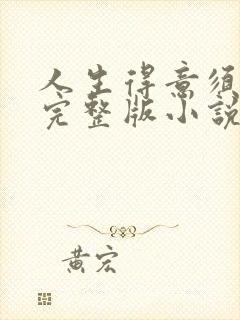 人生得意须
完整版小說
黄宏